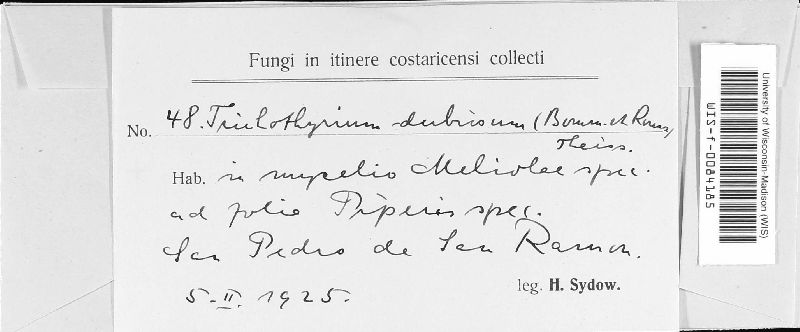 Fungi in itinere costaricensi collecti
No. 48. Trichothyrium dubiosum (Bomm. et Rouss.)
Theiss.
Hab. in mycelio Meliolae spec.
ad folia Piperis spec.
San Pedro de San Ramon.
5-II. 1925.
leg. H. Sydow.
University of Wisconsin-Madison (WIS)
WIS-f-0084185